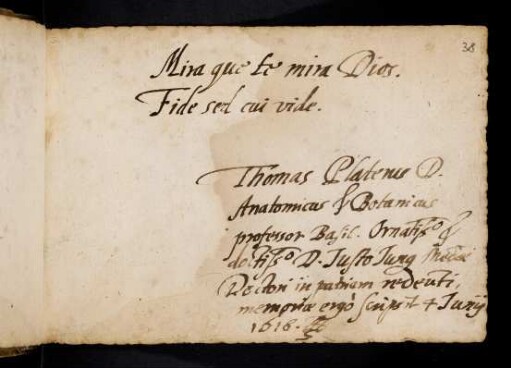 38
Mira que te mira Dios.
Fide sed cui vide.
Thomas Platerus D.
Anatomicus & Botanicus
professor Basil. Ornatiss.º &
doctiss.º D. Justo Jung Medic
Doctori in patriam redeunti,
memoriæ ergò scripsit 4 Junij
1616.